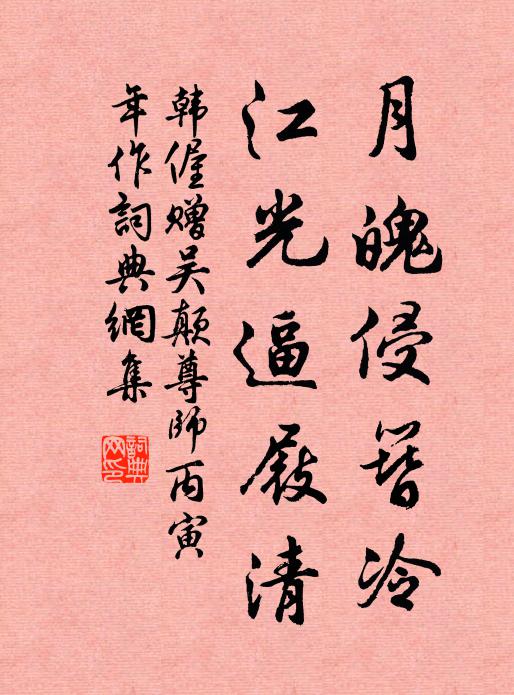 月魄侵簪冷
江光逼屐清
韩偓赠吴颠尊師丙寅
年作詞典網集
詞典网印